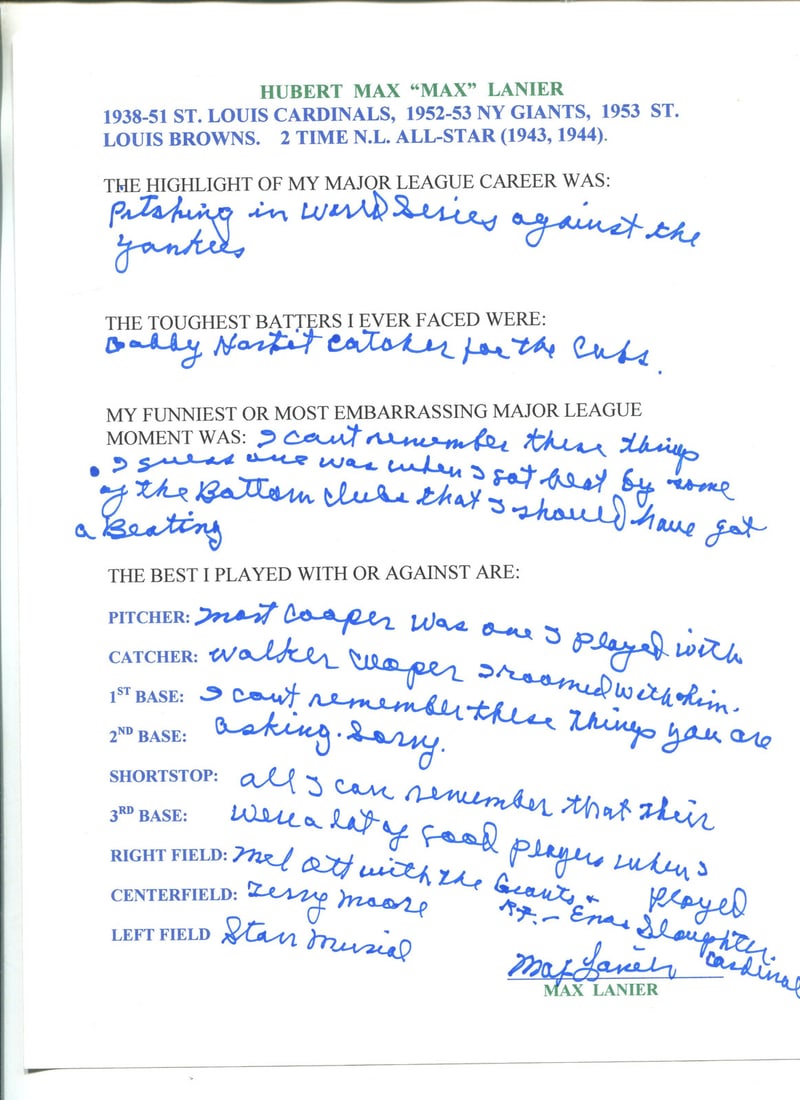 HUBERT MAX “MAX” LANIER
1938-51 ST. LOUIS CARDINALS, 1952-53 NY GIANTS, 1953 ST.
LOUIS BROWNS. 2 TIME N.L. ALL-STAR (1943, 1944).
THE HIGHLIGHT OF MY MAJOR LEAGUE CAREER WAS:
Pitching in World Series against the
Yankees
THE TOUGHEST BATTERS I EVER FACED WERE:
Gabby Hartnit catcher for the Cubs.
MY FUNNIEST OR MOST EMBARRASSING MAJOR LEAGUE
MOMENT WAS: I cant remember these things
I guess one was when I got beat by some
of the Bottom clubs that I should have got
a Beating
THE BEST I PLAYED WITH OR AGAINST ARE:
PITCHER: Mort Cooper was one I played with
CATCHER: Walker Cooper I roomed with him.
1ST BASE: I cant remember these things you are
2ND BASE: asking. Sorry.
SHORTSTOP: all I can remember that their
3RD BASE: were a lot of good players when I
played
RIGHT FIELD: Mel Ott with the Giants +
R.F. - Enos Slaughter.
Cardinal
CENTERFIELD: Terry Moore
LEFT FIELD Stan Musial
Max Lanier
MAX LANIER